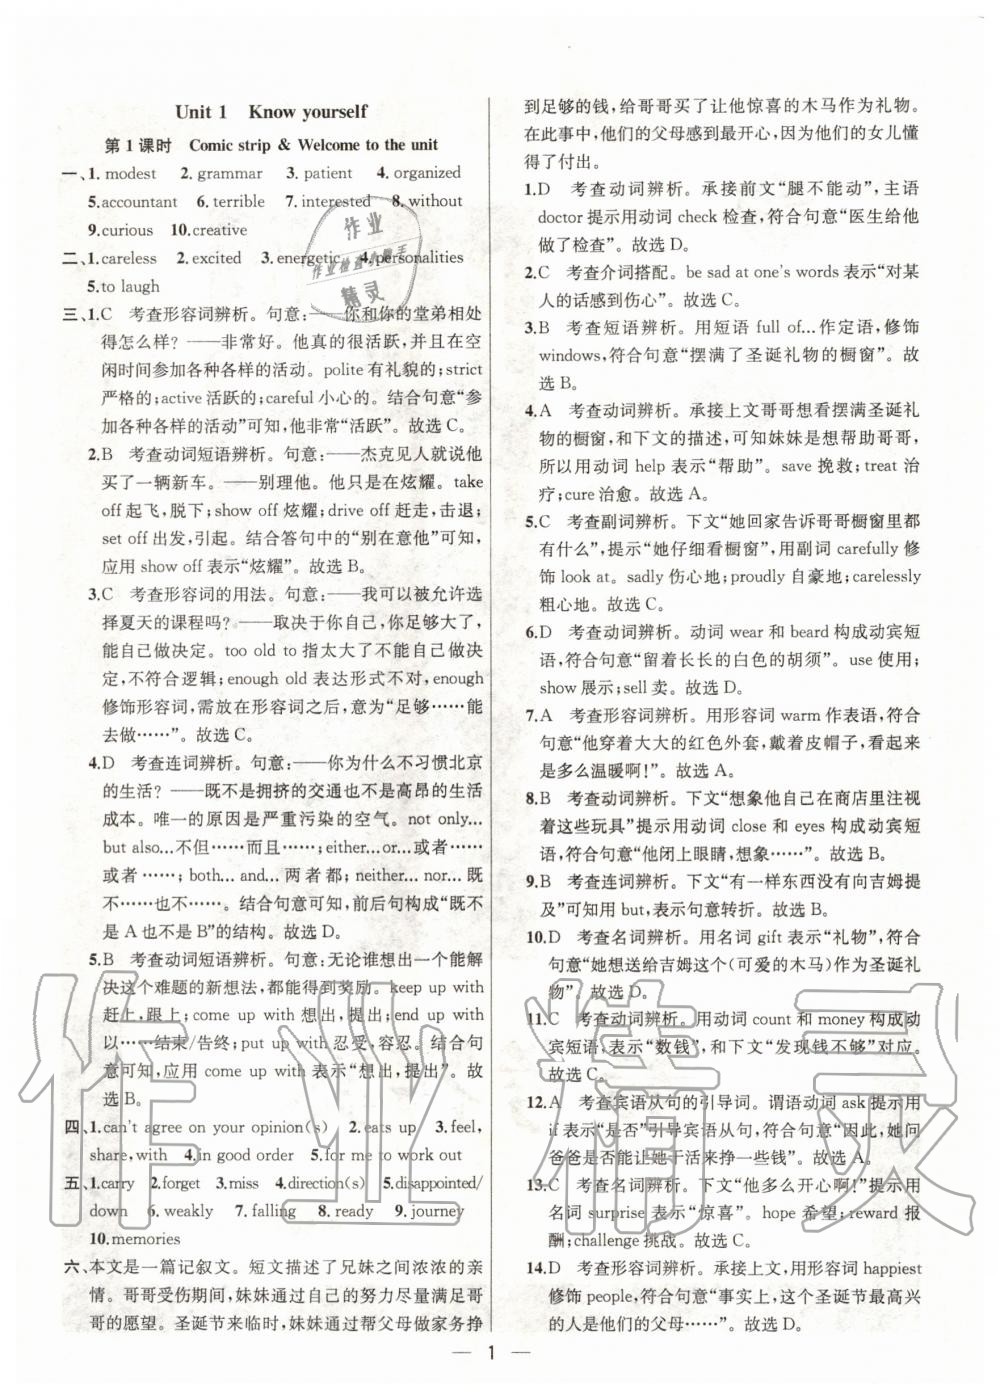 Unit 1 Know yourself
第1课时 Comic strip & Welcome to the unit
一、1. modest 2. grammar 3. patient 4. organized
5. accountant 6. terrible 7. interested 8. without
9. curious 10. creative
二、1. careless 2. excited 3. energetic 4. personalities
5. to laugh
三、1. C 考查形容词辨析。句意:——你和你的堂弟相处
得怎么样? ——非常好。他真的很活跃,并且在空
闲时间参加各种各样的活动。polite 有礼貌的;strict
严格的;active 活跃的;careful 小心的。结合句意“参
加各种各样的活动”可知,他非常“活跃”。故选 C。
2. B 考查动词短语辨析。句意:——杰克见人就说他
买了一辆新车。——别理他。他只是在炫耀。take
off 起飞,脱下;show off 炫耀;drive off 赶走,击退;
set off 出发,引起。结合答句中的“别在意他”可知,
应用 show off 表示“炫耀”。故选 B。
3. C 考查形容词的用法。句意:——我可以被允许选
择夏天的课程吗? ——取决于你自己,你足够大了,
能自己做决定。too old to 指太大了不能自己做决
定,不符合逻辑;enough old 表达形式不对,enough
修饰形容词,需放在形容词之后,意为“足够……能
去做……”。故选 C。
4. D 考查连词辨析。句意:——你为什么不习惯北京
的生活? ——既不是拥挤的交通也不是高昂的生活
成本。唯一的原因是严重污染的空气。not only...
but also...不但……而且……;either...or...或者……
或者……;both...and...两者都;neither...nor...既
不……也不……。结合句意可知,前后句构成“既不
是 A 也不是 B”的结构。故选 D。
5. B 考查动词短语辨析。句意:无论谁想出一个能解
决这个难题的新想法,都会得到奖励。keep up with
赶上,跟上;come up with 想出,提出;end up with
以……结束/告终;put up with 忍受,容忍。结合句
意可知,应用 come up with 表示“想出,提出”。故
选 B。
四、1. can't agree on your opinion(s) 2. eats up 3. feel,
share, with 4. in good order 5. for me to work out
五、1. carry 2. forget 3. miss 4. direction(s) 5. disappointed/
down 6. weakly 7. falling 8. ready 9. journey
10. memories
六、本文是一篇记叙文。短文描述了兄妹之间浓浓的亲
情。哥哥受伤期间,妹妹通过自己的努力尽量满足哥
哥的愿望。圣诞节来临时,妹妹通过帮父母做家务挣
到足够的钱,给哥哥买了让他惊喜的木马作为礼物。
在此事中,他们的父母感到最开心,因为他们的女儿懂
得了付出。
1. D 考查动词辨析。承接前文“腿不能动”,主语
doctor 提示用动词 check 检查,符合句意“医生给他
做了检查”。故选 D。
2. C 考查介词搭配。be sad at one's words 表示“对某
人的话感到伤心”。故选 C。
3. B 考查短语辨析。用短语 full of...作定语,修饰
windows,符合句意“摆满了圣诞礼物的橱窗”。故
选 B。
4. A 考查动词辨析。承接上文哥哥想看摆满圣诞礼
物的橱窗,和下文的描述,可知妹妹是想帮助哥哥,
所以用动词 help 表示“帮助”。save 挽救;treat 治
疗;cure 治愈。故选 A。
5. C 考查副词辨析。下文“她回家告诉哥哥橱窗里都
有什么”,提示“她仔细看橱窗”,用副词 carefully 修
饰 look at。sadly 伤心地;proudly 自豪地;carelessly
粗心地。故选 C。
6. D 考查动词辨析。动词 wear 和 beard 构成动宾短
语,符合句意“留着长长的白色的胡须”。use 使用;
show 展示;sell 卖。故选 D。
7. A 考查形容词辨析。用形容词 warm 作表语,符合
句意“他穿着大大的红色外套,戴着皮帽子,看起来
是多么温暖啊!”。故选 A。
8. B 考查动词辨析。下文“想象他自己在商店里注视
着这些玩具”提示用动词 close 和 eyes 构成动宾短
语,符合句意“他闭上眼睛,想象……”。故选 B。
9. B 考查连词辨析。下文“有一样东西没有向吉姆提
及”可知用 but,表示句意转折。故选 B。
10. D 考查名词辨析。用名词 gift 表示“礼物”,符合
句意“她想送给吉姆这个(可爱的木马)作为圣诞礼
物”。故选 D。
11. C 考查动词辨析。用动词 count 和 money 构成动
宾短语,表示“数钱”,和下文“发现钱不够”对应。
故选 C。
12. A 考查宾语从句的引导词。谓语动词 ask 提示用
if 表示“是否”引导宾语从句,符合句意“因此,她问
爸爸是否能让她干活来挣一些钱”。故选 A。
13. C 考查名词辨析。下文“他多么开心啊!”提示用
名词 surprise 表示“惊喜”。hope 希望;reward 报
酬;challenge 挑战。故选 C。
14. D 考查形容词辨析。承接上文,用形容词 happiest
修饰 people,符合句意“事实上,这个圣诞节最高兴
的人是他们的父母……”。故选 D。
1
作业
作业检查小能手
精灵
作业精灵